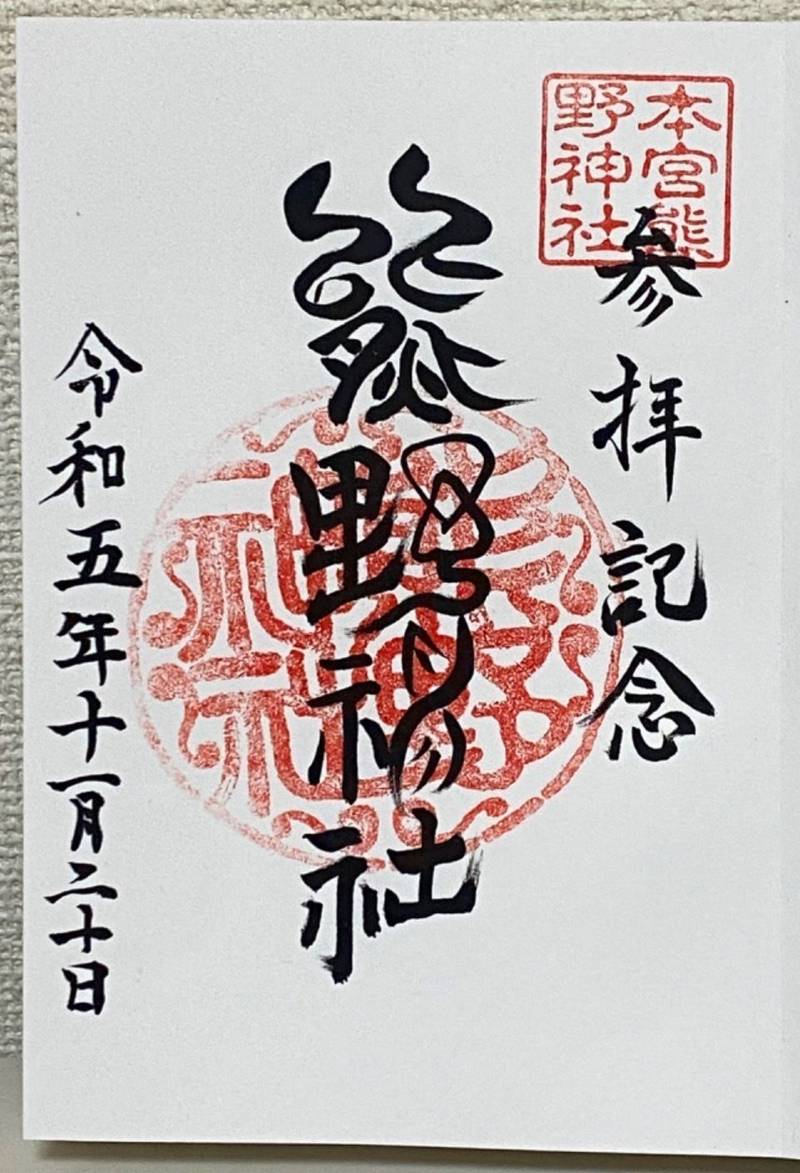 本宮熊
野神社
参拝記念
熊野神社
令和五年十一月二十日